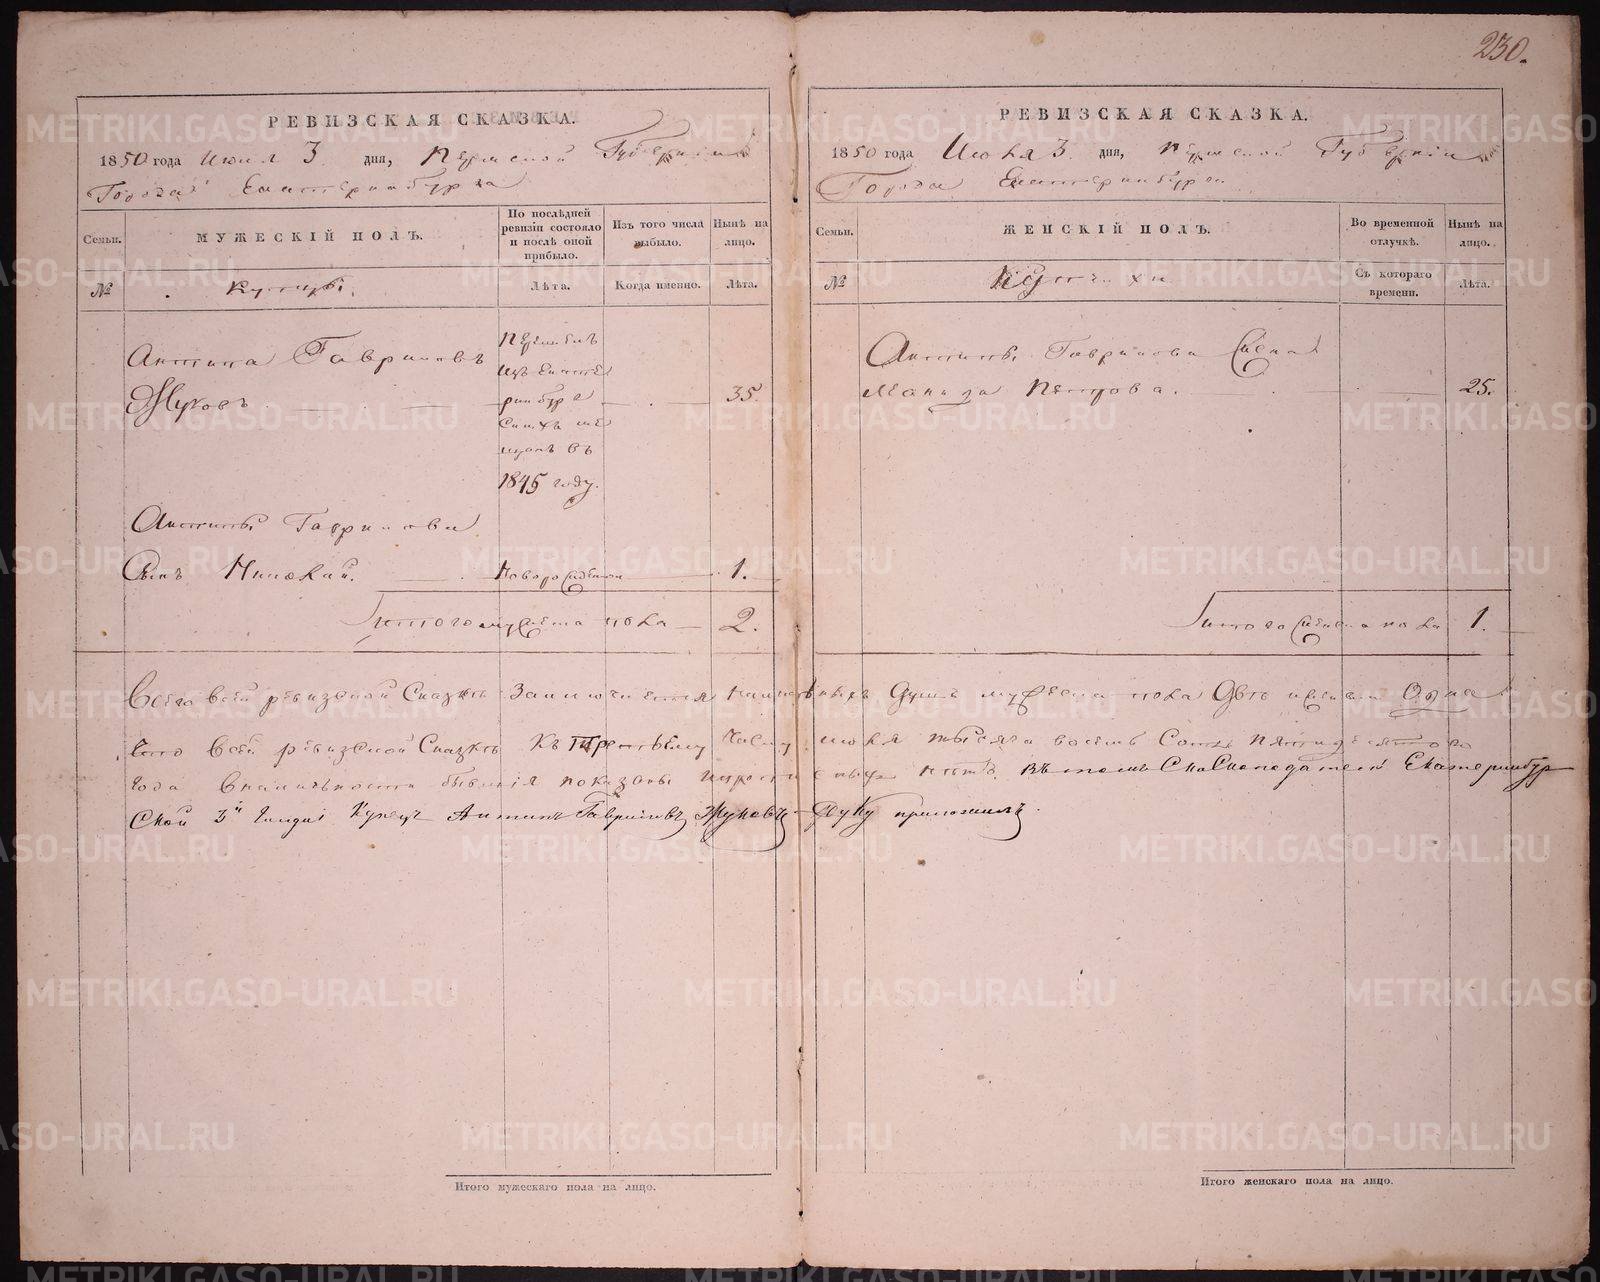 230.
РЕВИЗСКАЯ СКАЗКА.
1850 года Июля 3 дня, Пермской Губернiи
Города Екатеринбурга
Семьи.
МУЖЕСКIЙ ПОЛЪ.
По послѣдней ревизiи состояло и послѣ оной прибыло.
Изъ того числа выбыло.
Нынѣ на лицо.
№
Купцы.
Лѣта.
Когда именно.
Лѣта.
Антипа Гавриловъ
Жуковъ
35.
изъ Екате
ринбург
в ъ
1845 году.
Антипы Гаврилова
Сынъ Николай.
Новорожденной
1.
Итого мужеска пола
2.
РЕВИЗСКАЯ СКАЗКА.
1850 года Июля 3. дня, Пермской Губернiи
Города Екатеринбурга
Семьи.
ЖЕНСКIЙ ПОЛЪ.
Во временной отлучкѣ.
Нынѣ на лицо.
№
Купчихи
Съ котораго времени.
Лѣта.
Антипы Гаврилова Жена
Петрова.
25.
Итого женска пола
1.
Всего в сей ревизской Сказкѣ Заключается наличныхъ Душъ мужеска пола Двѣ Одна
ревизской Сказкѣ Къ Третьему Июля тысяча восемь Сотъ пятидесятого
года показаны лѣтъ. Въ томъ Сказкоподатель Екатеринбур
Ской 3й Гильдiи Купецъ Антипъ Гавриловъ Жуковъ Руку приложилъ.
Итого мужескаго пола на лицо.
Итого женскаго пола на лицо.
METRIKI.GASO-URAL.RU